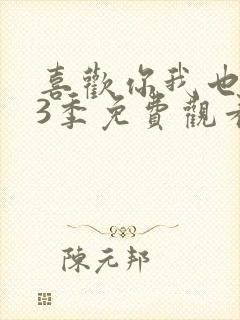 喜歡你我也
3季免費觀看
陳元邦